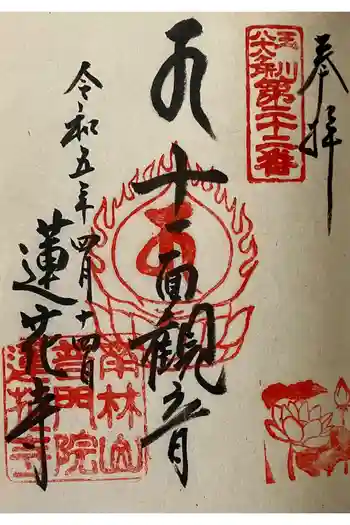 奉拝
玉川八十八ヶ所
第二十二番
十一面觀音
令和五年四月十四日
蓮花寺
南林山
普門院
蓮花寺